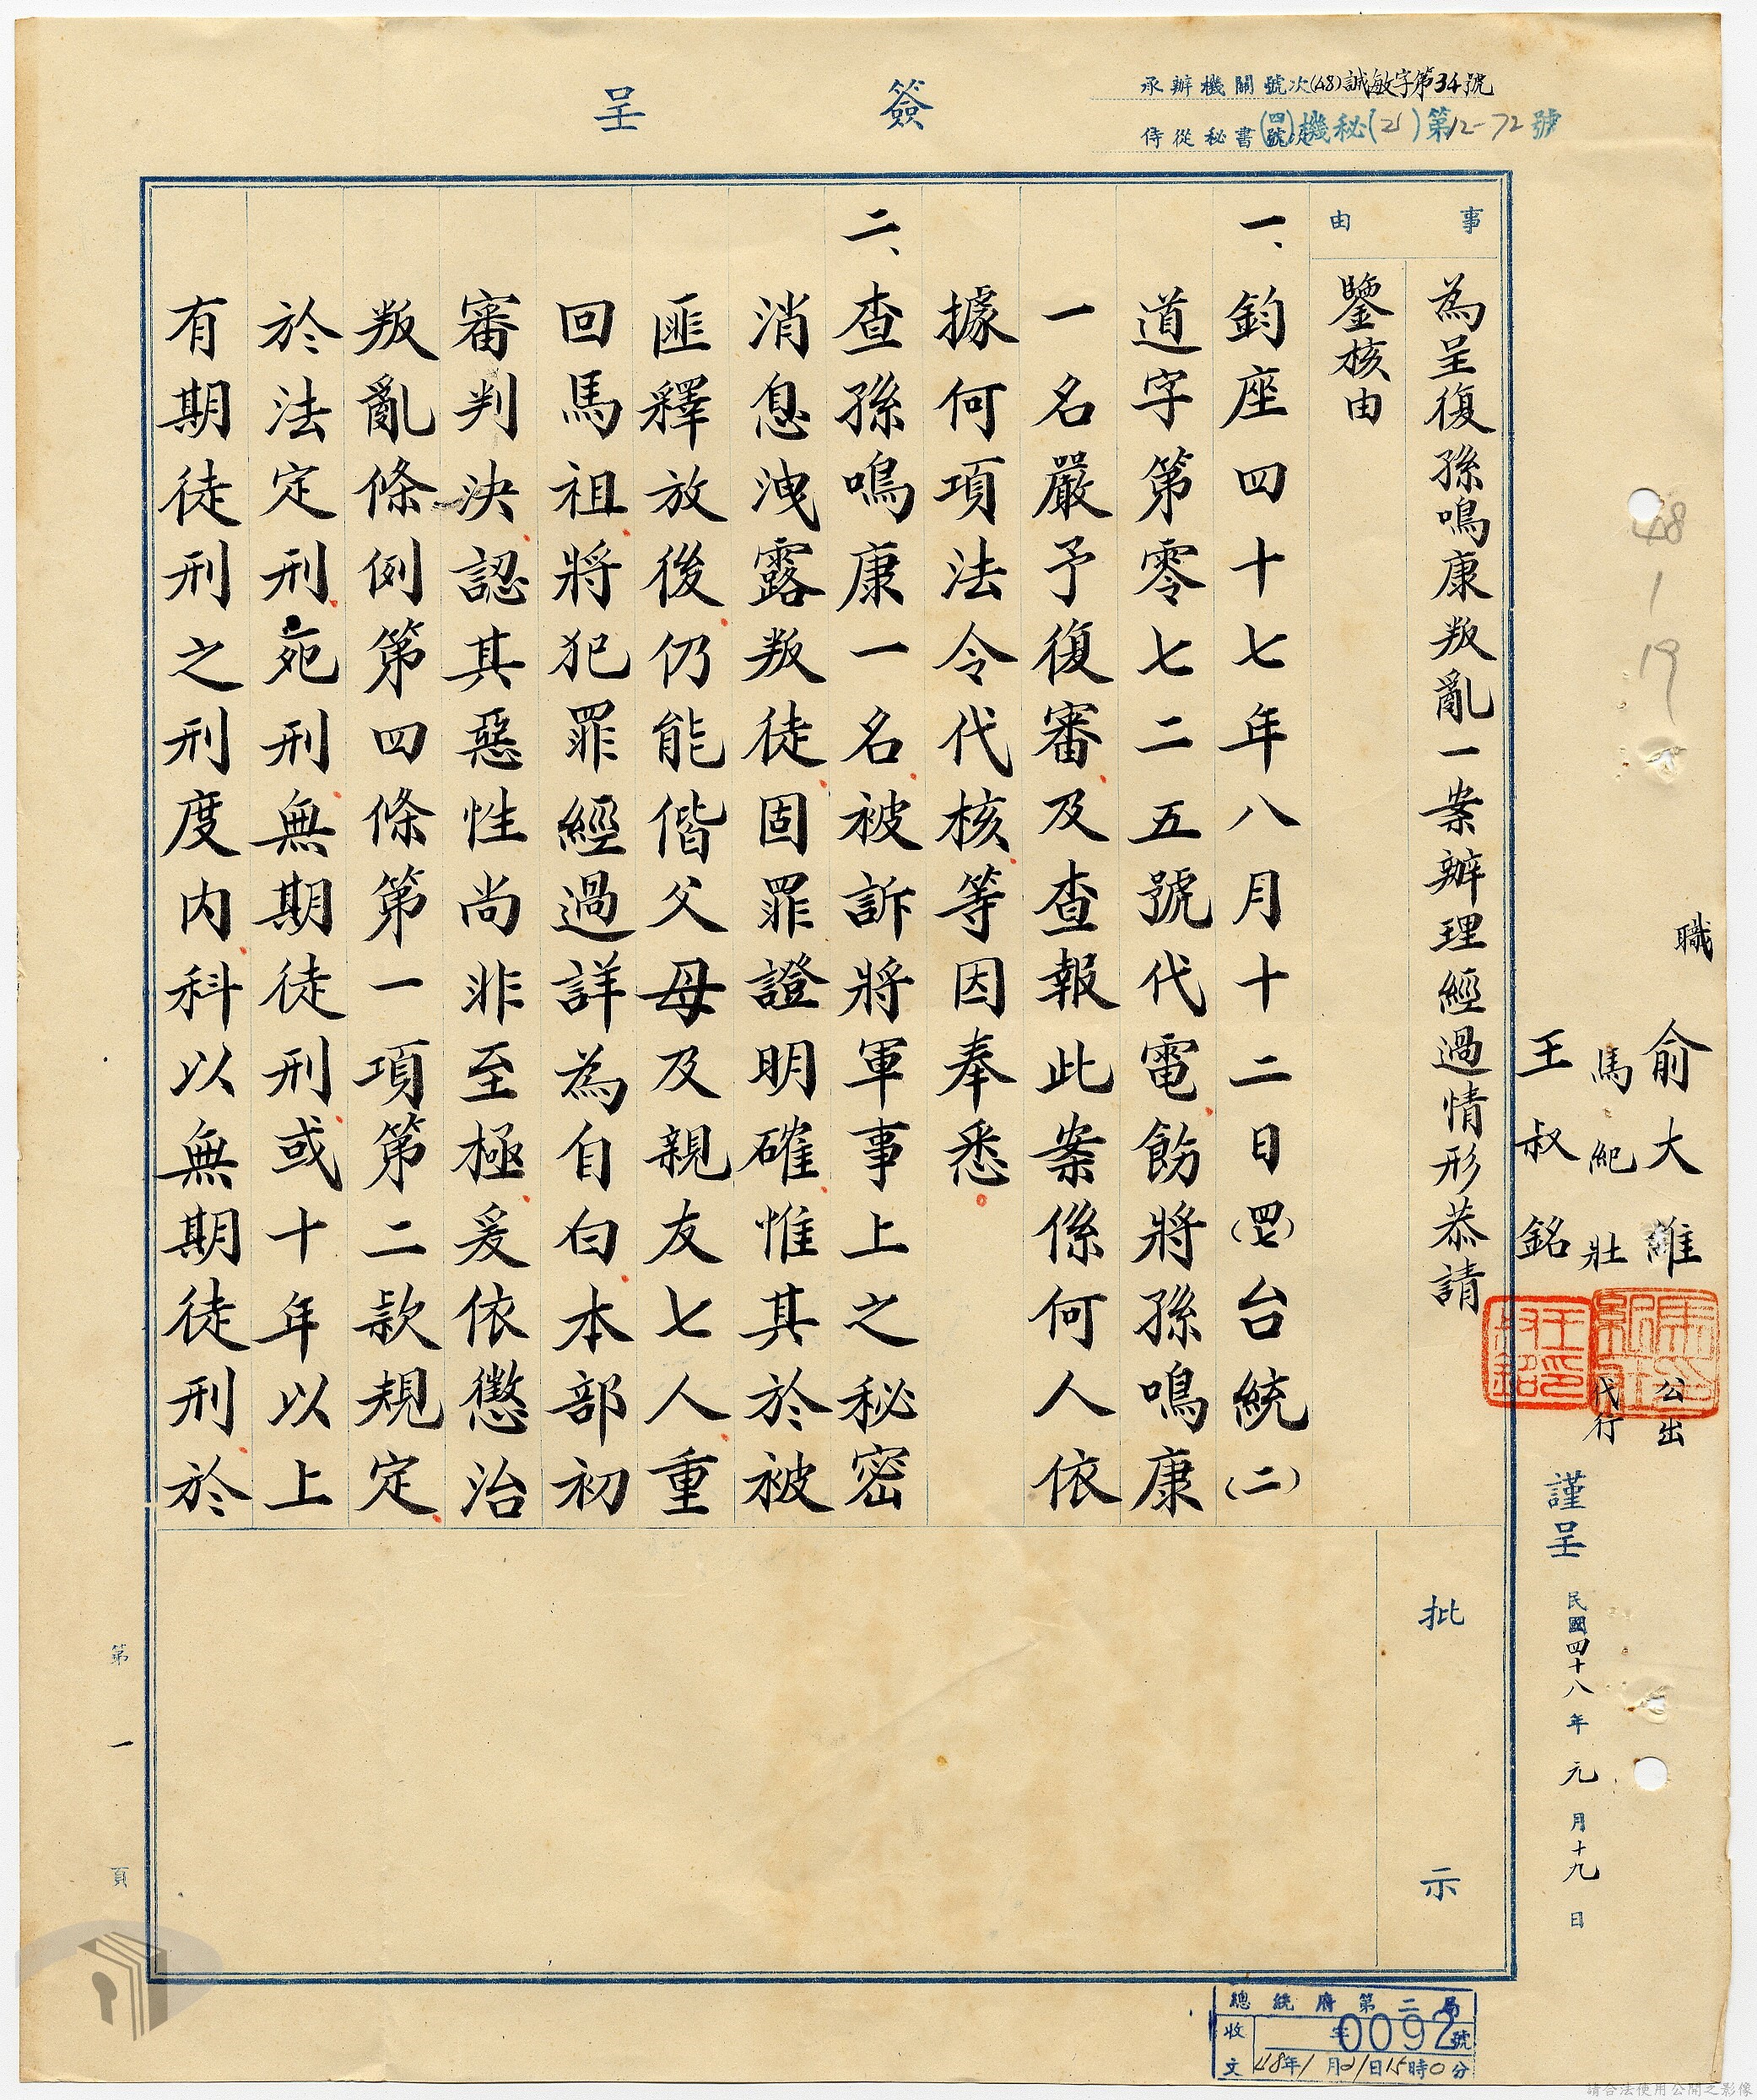 簽呈
承辦機關號次(48)誠敏字第34號
侍從秘書(四)號次機秘(21)第12-72號
事由
為呈復孫鳴康叛亂一案辦理經過情形恭請
鑒核由
一、鈞座四十七年八月十二日(四七)台統(二)
道字第零七二五號代電飭將孫鳴康
一名嚴予復審及查報此案係何人依
據何項法令代核等因奉悉
二、查孫鳴康一名被訴將軍事上之秘密
消息洩露叛徒固罪證明確惟其於被
匪釋放後仍能偕父母及親友七人重
回馬祖將犯罪經過詳為自白本部初
審判決認其惡性尚非至極爰依懲治
叛亂條例第四條第一項第二款規定
於法定刑死刑無期徒刑或十年以上
有期徒刑之刑度內科以無期徒刑於
批示
職
俞大維公出
馬紀壯代行
王叔銘
謹呈
民國四十八年元月十九日
48 1 19
第一頁
總統府第二局
收文 字0092號
48年1月21日15時0分
請合法使用公開之影像